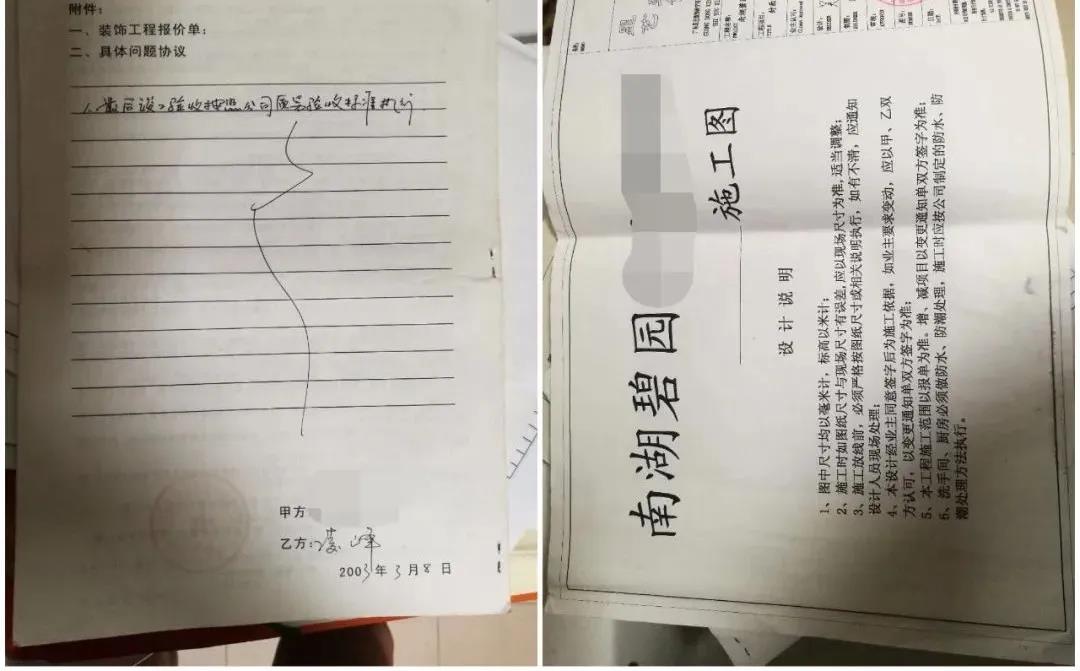 附件：
一、装饰工程报价单：
二、具体问题协议
1、最后竣工验收按照公司质量验收标准执行
甲方
乙方：凌峰
2003年3月8日
南湖碧园
施工图
设计说明
1、图中尺寸均以毫米计，标高以米计；
2、施工时如图纸尺寸与现场尺寸有误差，应以现场尺寸为准，适当调整；
3、施工放线前，必须严格按图纸尺寸或相关说明执行，如有不清，应通知
设计人员现场处理；
4、本设计经业主同意签字后为施工依据，如业主要求变动，应以甲、乙双
方认可，以变更通知单双方签字为准；
5、本工程施工范围以报单为准。增、减项目以变更通知单双方签字为准；
6、洗手间、厨房必须做防水、防潮处理，施工时应按公司制定的防水、防
潮处理方法执行。